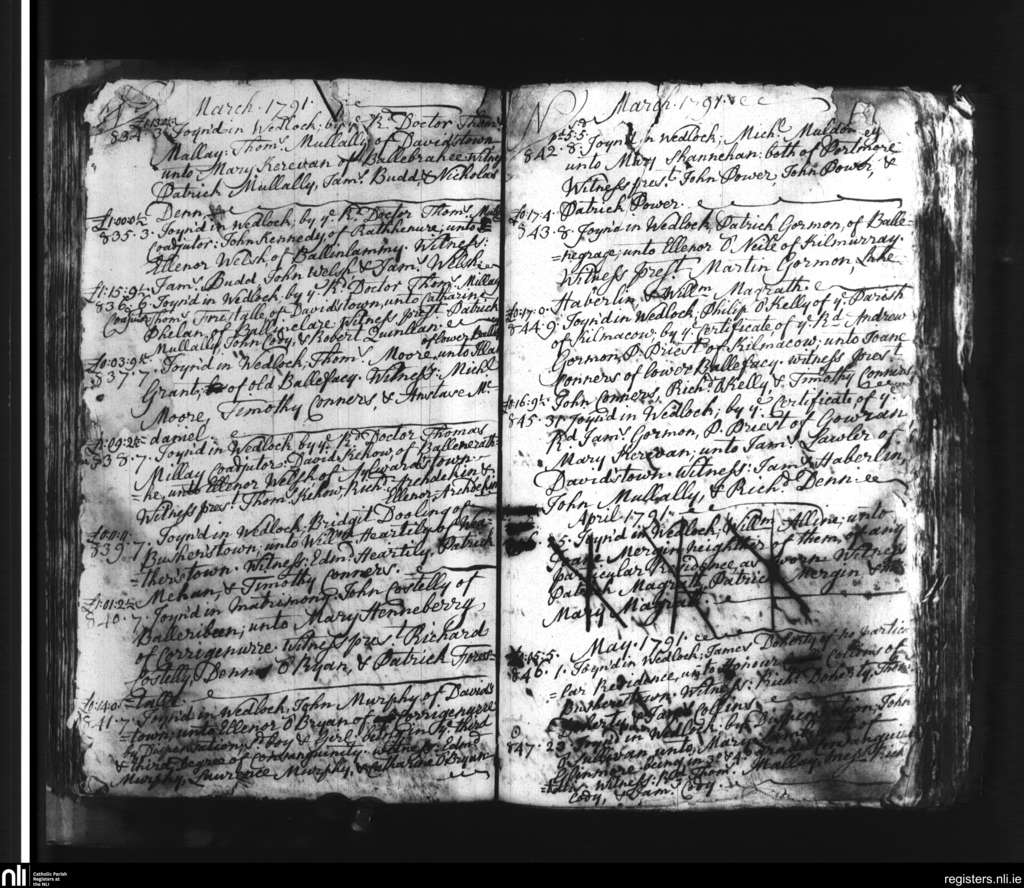 March. 1791.
834. 3. Joyn'd in Wedlock; by yᵉ Rᵈ Doctor Thomˢ
Mallay: Thomˢ Mullally of Davidstown
unto Mary Kerevan of Ballebrahee Witnˢ
Patrick Mullally, Jamˢ Budd, & Nicholas
Denn,
835. 3. Joyn'd in Wedlock; by yᵉ Rᵈ Doctor Thomˢ
Coadjutor: John Kennedy of Rathkenure; unto
Ellenor Welsh of Ballinlammy. Witness:
Jamˢ Budd, John Welsh & Jamˢ Welsh
836. 6. Joyn'd in Wedlock, by yᵉ Rᵈ Doctor Thomˢ Millay
Thomˢ of Davidstown, unto Catharine
Phelan, of Balleclare. Witness presᵗ Patrick
Mullally, John Cody, & Robert Quinllan.
of lower Balle
837. 7. Joyn'd in Wedlock, Thomˢ Moore, unto
Grant; of old Ballefacy. Witness: Michˡ
Moore, Timothy Conners, & Anstave Mᶜ
daniel
838. 7. Joyn'd in Wedlock by yᵉ Rᵈ Doctor Thomas
Millay Coadjutor: David Kehow, of Ballenerath
=he, unto Ellenor Welsh of Aylwardstown
Witness presᵗ Thomˢ Kehow, Richᵈ Archdekin &
Ellenor Archdekin
839. 7. Joyn'd in Wedlock Bridgit Dooling of
Busherstown; unto Willᵐ Heartily of
=therstown. Witness: Edmᵈ Heartily, Patrick
Mehan, & Timothy Conners.
£1:01:2
840. 7. Joyn'd in Matrimony John Costelly of
Balleribeen; unto Mary Henneberry
of Corrigenurre Witness presᵗ Richard
Costelly Dennis O Bryan, & Patrick Fores=
=tall.
841. 7. Joyn'd in Wedlock, John Murphy of Davids
=town; unto Ellenor O Bryan of Corrigenurre
by Dispensation, yᵉ boy & Girl being in yᵉ third
& third degree of Consanguinity. Witness: Edmᵈ
Murphy, Laurence Murphy, & Catharine O Bryan
March 1791.
842. 8. Joyn'd in Wedlock; Michˡ Muldowney
unto Mary Shannehan: both of Portmore
Witness presᵗ John Power, John Power, &
Patrick Power.
£0:17:4.
843. 8. Joyn'd in Wedlock, Patrick Gormon, of Balle=
=negrage; unto Ellenor O Neill of Kilmurray.
Witness presᵗ Martin Gormon, Luke
Haberlin, & Willᵐ Magrath.
£0:17:0.
844. 9. Joyn'd in Wedlock, Philip O Kelly of yᵉ Parish
of Kilmacow; by yᵉ Certificate of yᵉ Rᵈ Andrew
Gormon, P. Priest of Kilmacow; unto Joane
Conners of lower Ballefacy. witness presᵗ
John Conners, Richᵈ O Kelly, & Timothy Conners
845. 31. Joyn'd in Wedlock; by yᵉ Certificate of yᵉ
Rᵈ Jamˢ Gormon, P. Priest of Gowran
Mary Kerevan; unto Jamˢ Lawler of
Davidstown. Witness: Jamˢ Haberlin,
John Mullally, & Richᵈ Denn
April. 1791.
25. Joyn'd in Wedlock; Willᵐ Alline; unto
Joane Mergin neighter of them, of any
particular Residence, as sworne. Witness
Patrick Magrath, Patrick Mergin &
Mary Magrath.
May. 1791.
846. 1. Joyn'd in Wedlock; James Doherty of no partic
=lar Residence, unto Honour Collins of
Busherstown. Witness: Richᵈ Doherty, Thomˢ
Doherty & Jamˢ Collins
847. 23. Joyn'd in Wedlock, by Dispensation; John
O Sullivan, unto Mary
Glinmore being in 3ᵈ & 4ᵗʰ
Witness: Rᵈ Thomˢ Mallay,
Cody, & Damˢ Cody.
nli
Catholic Parish
Registers at
the NLI
registers.nli.ie